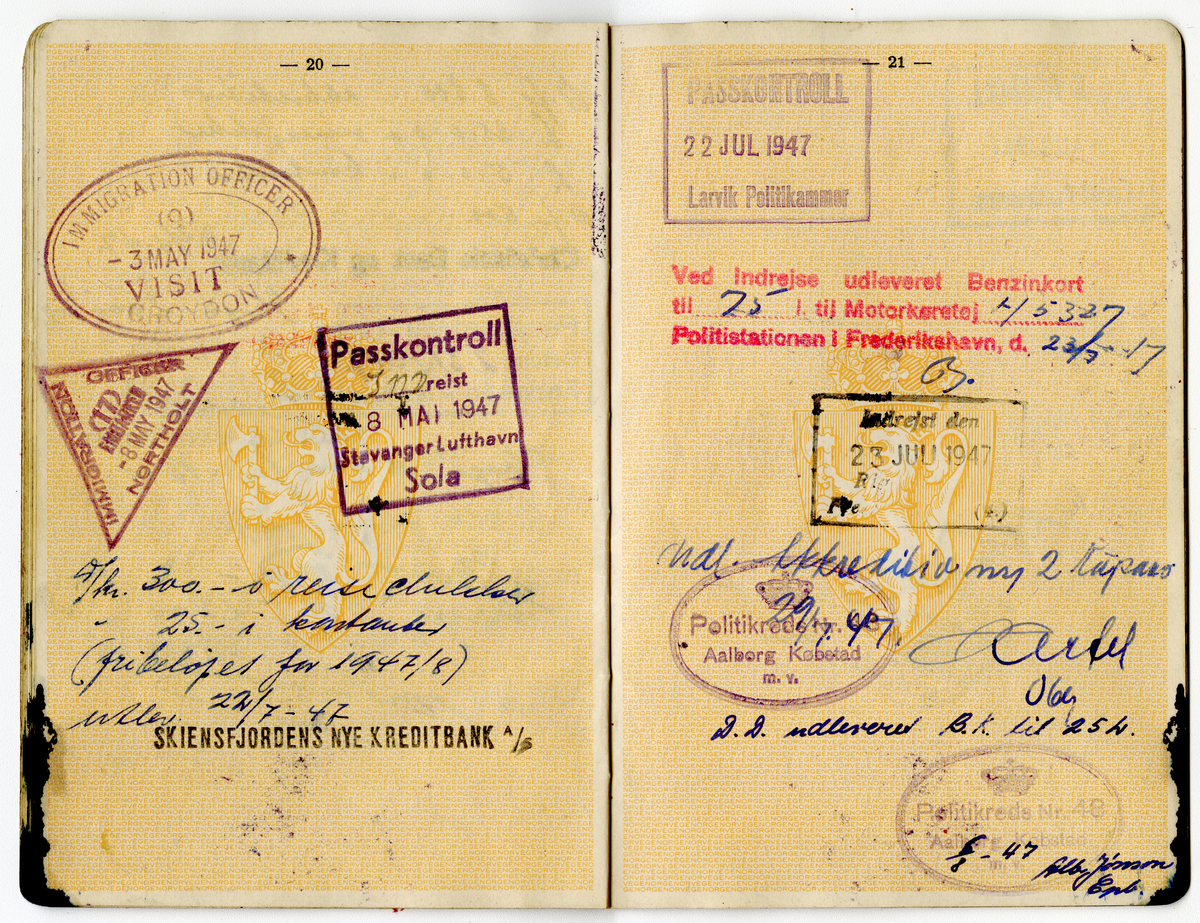 — 20 —
IMMIGRATION OFFICER
(9)
- 3 MAY 1947
VISIT
CROYDON
IMMIGRATION OFFICER
EMBARKED
- 8 MAY 1947
NORTHOLT
Passkontroll
Innreist
8 MAI 1947
Stavanger Lufthavn
Sola
kr. 300.- i reise
" 25.- i kontanter
(fribeløpet for 1947/8)
utlev. 22/7 - 47
SKIENSFJORDENS NYE KREDITBANK A/S
— 21 —
PASSKONTROLL
22 JUL 1947
Larvik Politikammer
Ved Indrejse udleveret Benzinkort
til 25 l. til Motorkøretøj H/5327
Politistationen i Frederikshavn, d. 23/7-47
Indrejst den
23 JULI 1947
Fre
Udl. Akkreditiv
29/7 47
Politikreds Nr. 48
Aalborg Købstad
m. v.
D.D. udleveret B.K. til 25 L.
Politikreds Nr. 48
Aalborg Købstad
m.
6/8 - 47